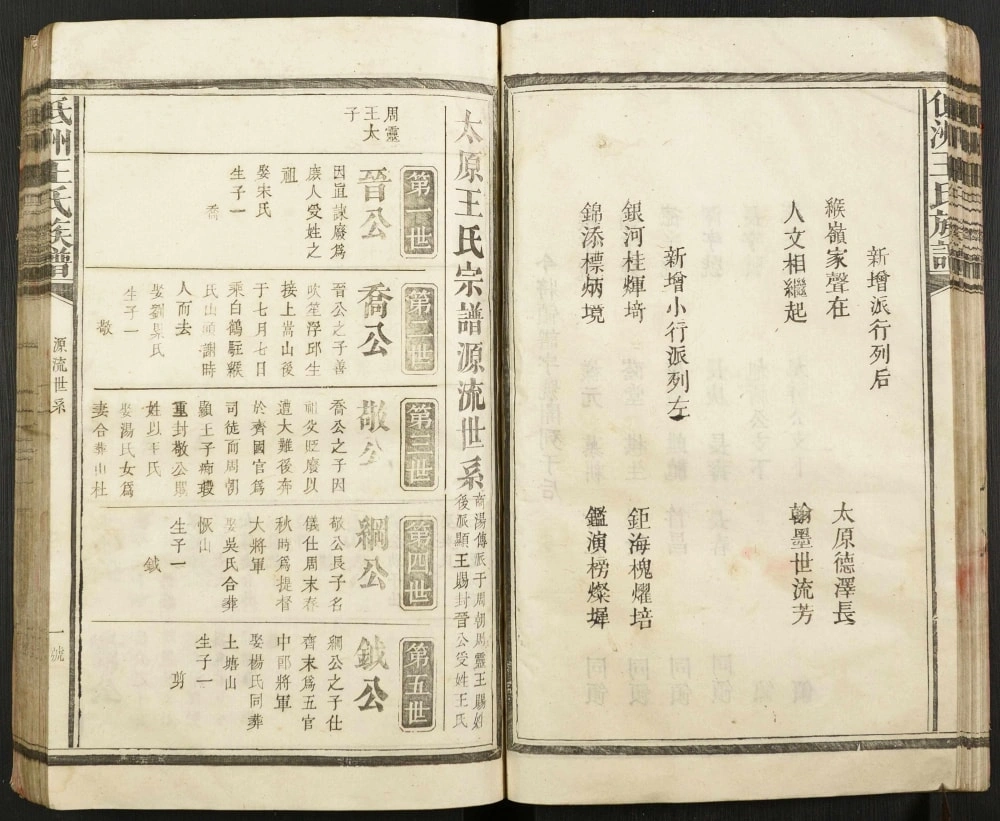 新增派行列后
緱嶺家聲在
太原德澤長
人文相繼起
翰墨世流芳
新增小行派列左
銀河桂煇堉
鉅海槐燿培
錦添標炳境
鑑演榜燦墀
太原王氏宗譜源流世系
商湯傳派于周朝周靈王賜姓
後派顯王賜封晉公受姓王氏
周靈
王太
子
第一世
晉公
因宜諫廢爲
庶人受姓之
祖
娶宋氏
生子一
喬
第二世
喬公
晉公之子善
吹笙浮邱生
接上嵩山後
于七月七日
乘白鶴駐緱
氏山頭謝時
人而去
娶劉氏
生子一
敬
第三世
敬公
喬公之子因
祖父貶廢以
遭大難後奔
於齊國官爲
司徒而周朝
顯王子痴
重封敬公賜
姓以王氏
娶湯氏女爲
妻合葬山杜
第四世
綱公
敬公長子名
儀仕周末春
秋時爲提督
大將軍
娶吳氏合葬
恢山
生子一
鉞
第五世
鉞公
綱公之子仕
齊末爲五官
中郎將軍
娶楊氏同葬
土塘山
生子一
剪
王氏族譜
源流世系
一號
洲王氏族譜